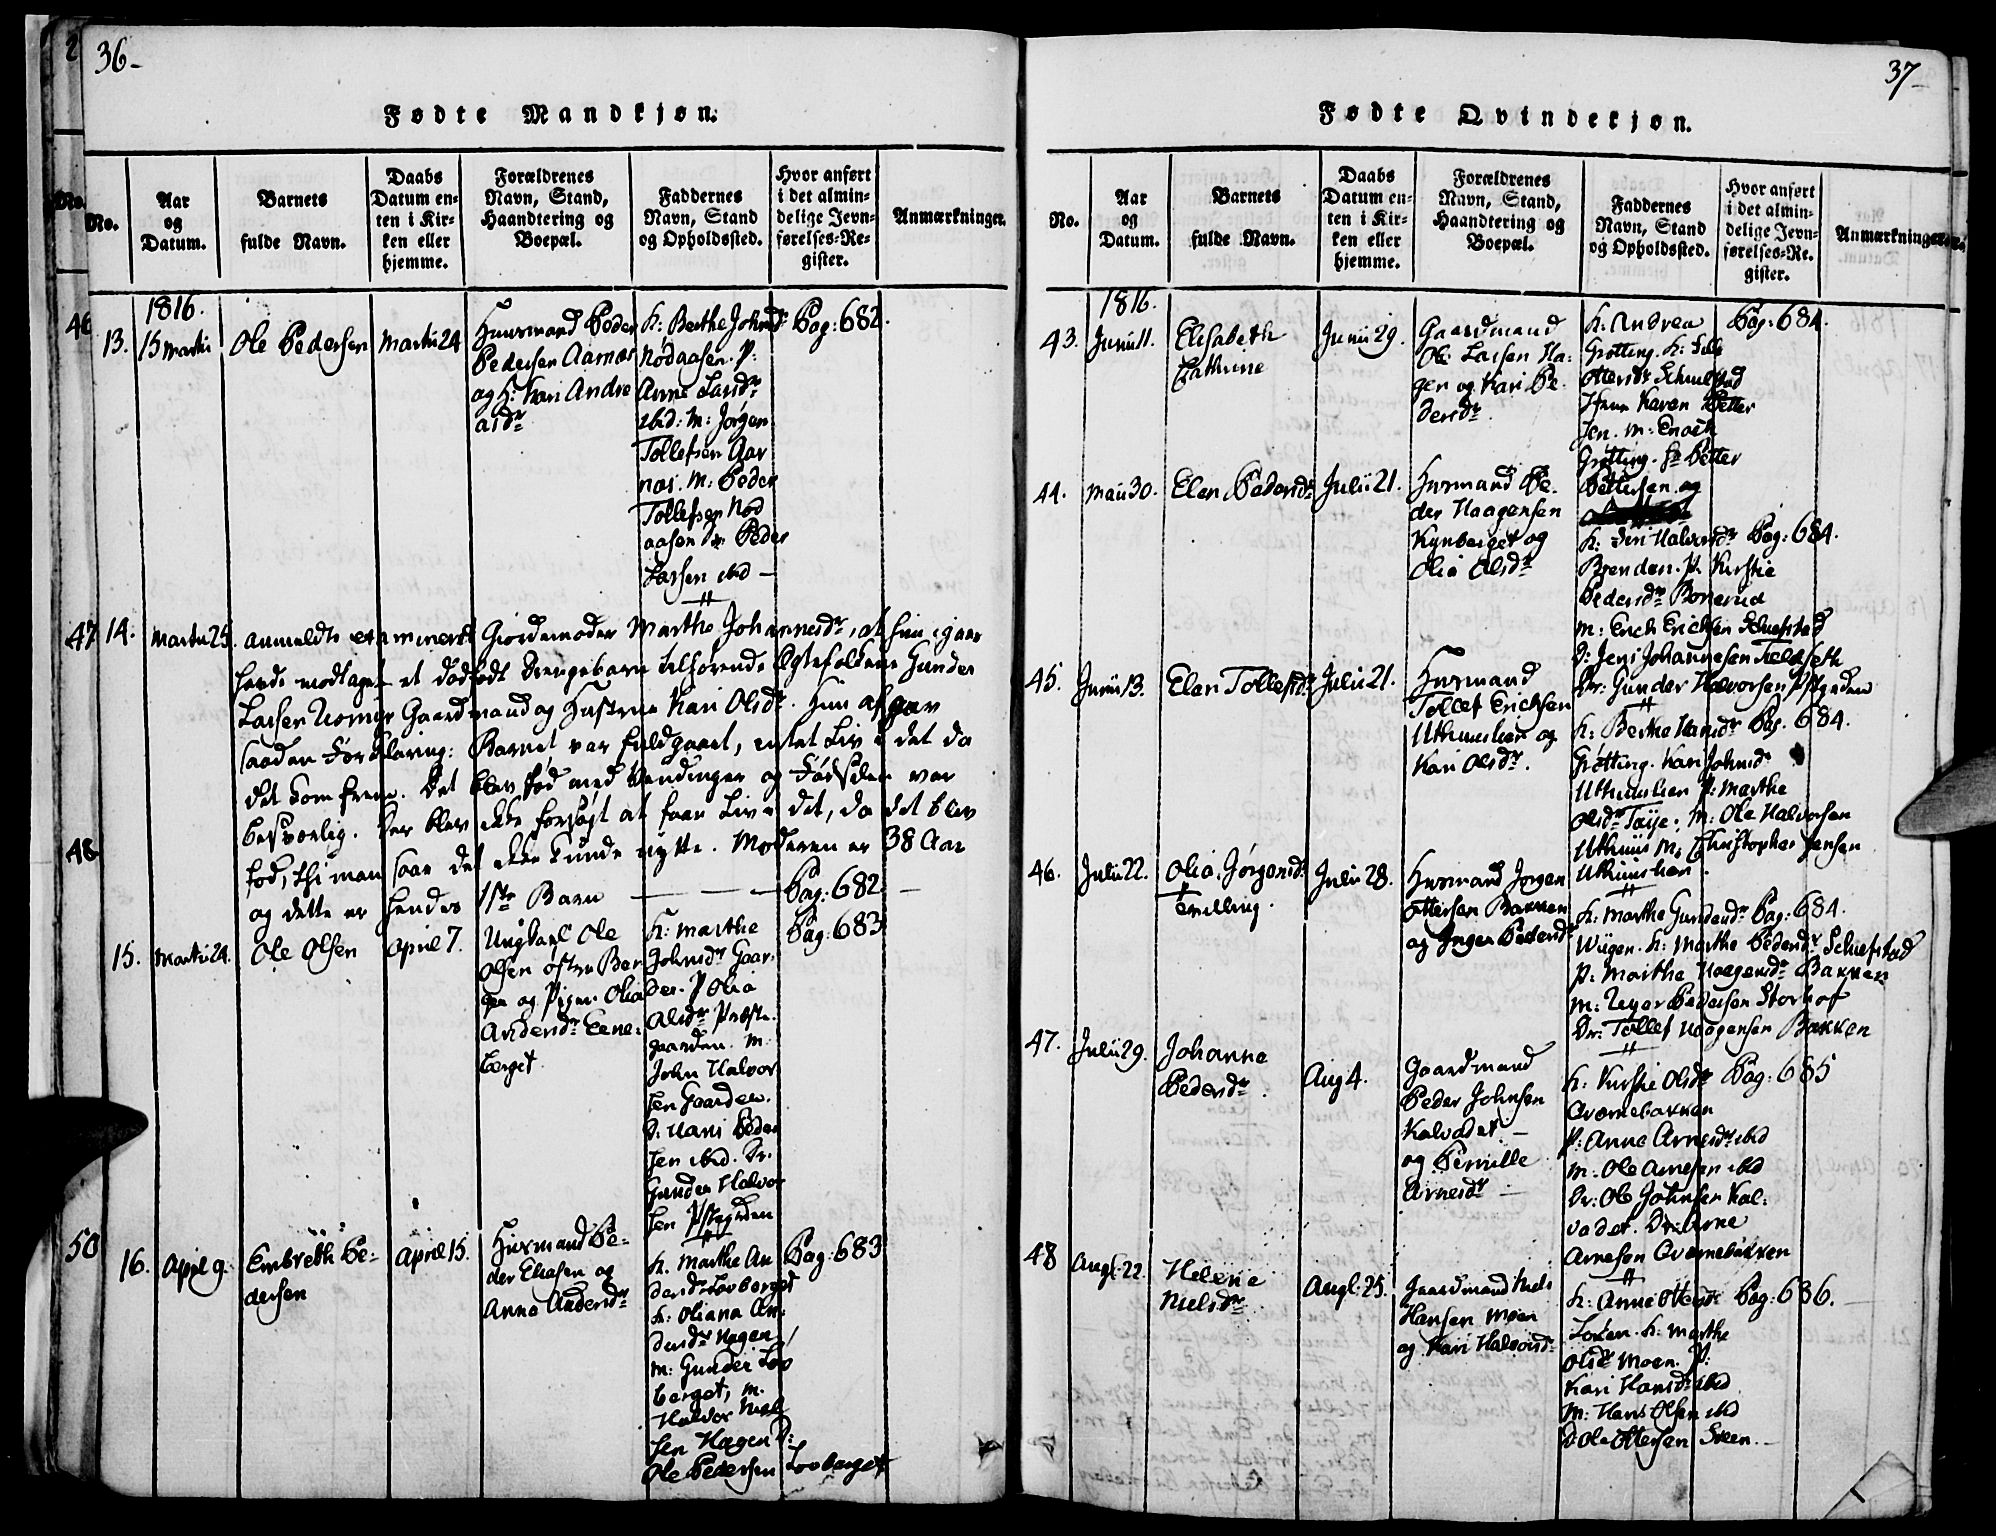 36-
Fødte Mandkjøn.
No.
Aar og Datum.
Barnets fulde Navn.
Daabs Datum enten i Kirken eller hjemme.
Forældrenes Navn, Stand, Haandtering og Boepæl.
Faddernes Navn, Stand og Opholdssted.
Hvor anført i det almindelige Jevnførelses-Register.
Anmærkninger.
1816.
13.
15 Martii
Ole Pedersen
Martii 24
Huusmand Peder
Pedersen Aarnæs
og H: Kari Andre
asdr
K: Berthe Johnsdr
Nødaasen. P:
Anne Larsdr
ibid: M: Jørgen
Tollefsen Aar
næs. M: Peder
Tollefsen Nød
aasen Dr: Peder
Larsen ibid —
Pag: 682.
14.
Martii 25.
anmeldte examinerte Giordemoder Marthe Johannesdr, at hun igaar
havde modtaget et dødfødt Drengebarn tilhørende Ægtefolkene Gunder
Larsen Gaardmand og Hustrue Kari Olsdr. Hun afgav
saadan Forklaring: Barnet var fuldgaaet, intet Liv i det da
det kom frem. Det blev fød med Vendinger og Fødselen var
besværlig. Der blev ikke forsøgt at faae Liv i det, da det blev
fød, thi man saae det ikke kunde nytte. Moderen er 38 Aar
og dette er hendes 1ste Barn — — — Pag: 682 —
15.
Martii 24.
Ole Olsen
April 7.
Ungkarl Ole
Olsen østre Ber
gen og Pigen Olia
Andersdr Eene:
berget
K: Marthe
Johnsdr Gaar
den. P Olia
Olsdr Præste
gaarden. M:
John Halvor
sen Gaarden.
D: Hans Peder
sen ibid. Dr.
Gunder Halvor
sen Pstgrden
Pag: 683
16.
April 9.
Embreth Pe:
dersen
April 15.
Huusmand Pe-
der Eliasen og
Anne Andersdr
K. Marthe An
dersdr Lovberget
K: Oliana An:
dersdr Hagen
M: Gunder Lov
berget, M.
Halvor Niel
sen Hagen D:
Ole Pedersen Lovberget
Pag: 683
46
47
48
50
37-
Fødte Qvindekjøn.
No.
Aar og Datum.
Barnets fulde Navn.
Daabs Datum enten i Kirken eller hjemme.
Forældrenes Navn, Stand, Haandtering og Boepæl.
Faddernes Navn, Stand og Opholdssted.
Hvor anført i det almindelige Jevnførelses-Register.
Anmærkninger.
1816.
43.
Junii 11.
Elisabeth
Cathrine
Junii 29.
Gaardmand
Ole Larsen Ha:
gen og Kari Pe
dersdr
K: Andrea
Grøtting. K:
Ottersdr
Karen Petter
sen. M: Enoch
Grøtting. Petter
Pettersen og
Pag: 684.
44.
Maii 30.
Elen Pedersdr
Julii 21.
Huusmand Pe-
der Haagensen
Kynberget og
Olia Olsdr
K: Siri Halvorsdr
Brenden. P. Kirstie
Pedersdr
M: Erich Erichsen
D: Jens Johannesen
Dr: Gunder Halvorsen Pstgrden
Pag: 684.
45.
Junii 13.
Elen Tollefsdr
Julii 21.
Huusmand
Tollef Erichsen
Uthuuslien og
Kari Olsdr.
K: Berthe Hansdr
Grøtting. Kari Johnsdr
Uthuuslien P: Marthe
Olsdr. M: Ole Halvorsen
Uthuus M: Christopher Jensen
Uthuuslien.
Pag. 684.
46.
Julii 22.
Olia Jørgensdr
Tvilling.
Julii 28.
Huusmand Jørgen
Ottersen Bakken
og Inger Pedersdr
K: Marthe Gundersdr
Wiigen. K: Marthe Pedersdr
P: Marthe Haagensdr Bakken
M: Peersen Storhof
Dr: Tollef Haagensen Bakken
Pag: 684.
47.
Julii 29.
Johanne
Pedersdr.
Aug 4.
Gaardmand
Peder Johnsen
Kalvadet —
og Pernille
Arnesdr —
K: Kirstie Olsdr
Qværnebakken
P: Anne Arnesdr ibid
M: Ole Arnesen ibid
Dr: Ole Johnsen Kal:
vadet. Dr: Arne
Arnesen Qværnebakken
Pag: 685
48
Augl: 22.
Helene
Nielsdr
Augl: 25.
Gaardmand Niels
Hansen Moen
og Kari Halvorsdr
K: Anne Ottersdr
K: Marthe
Olsdr Moen. P:
Kari Hansdr ibid
M: Hans Olsen ibid
D Ole Ottersen Sveen.—
Pag: 686.